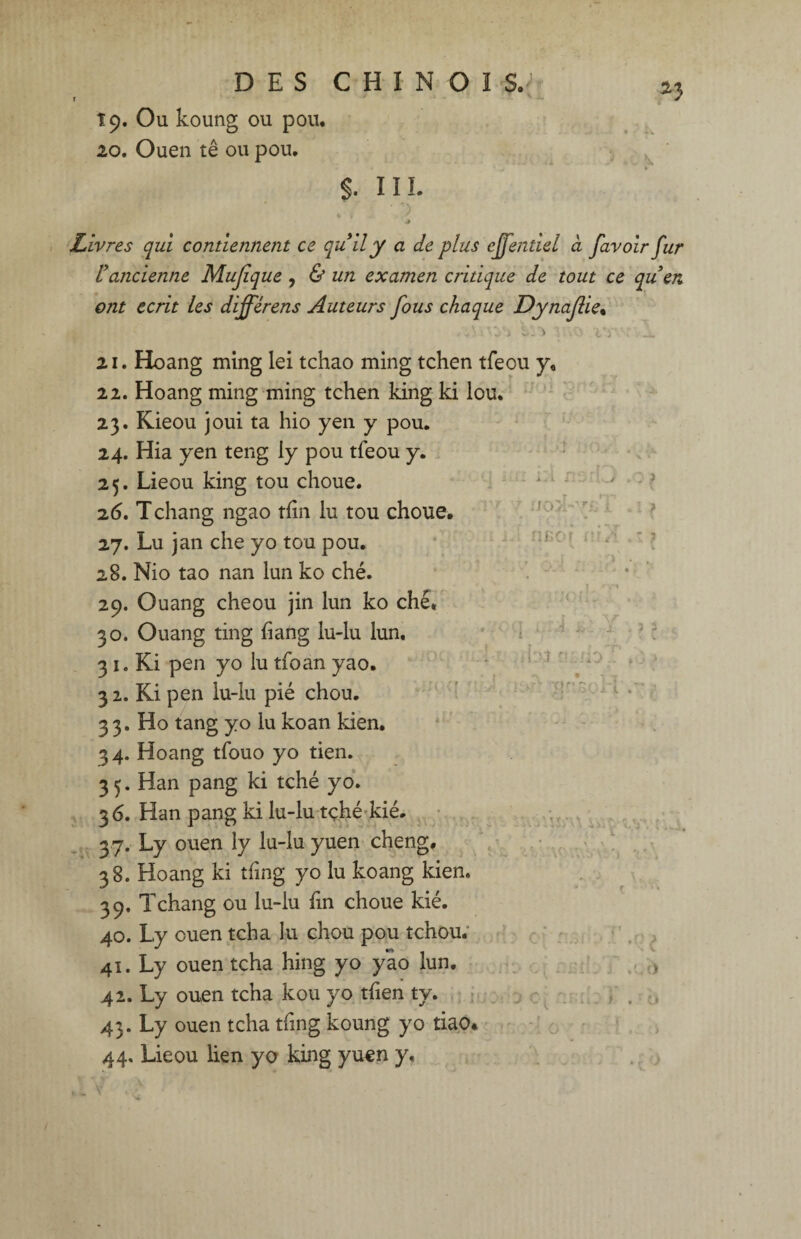 DES CHINOIS. 23
19. Ou koung ou pou.
20. Ouen tê ou pou.
§. III.
Livres qui contiennent ce qu'il y a de plus eſſentiel à ſavoir ſur
l'ancienne Muſique, & un examen critique de tout ce qu'en
ont ecrit les différens Auteurs ſous chaque Dynaſtie.
21. Hoang ming lei tchao ming tchen tſeou y.
22. Hoang ming ming tchen king ki lou.
23. Kieou joui ta hio yen y pou.
24. Hia yen teng ly pou tſeou y.
25. Lieou king tou choue.
26. Tchang ngao tſin lu tou choue.
27. Lu jan che yo tou pou.
28. Nio tao nan lun ko ché.
29. Ouang cheou jin lun ko ché.
30. Ouang ting ſiang lu-lu lun.
31. Ki pen yo lu tſoan yao.
32. Ki pen lu-lu pié chou.
33. Ho tang yo lu koan kien.
34. Hoang tſouo yo tien.
35. Han pang ki tché yo.
36. Han pang ki lu-lu tché kié.
37. Ly ouen ly lu-lu yuen cheng.
38. Hoang ki tſing yo lu koang kien.
39. Tchang ou lu-lu ſin choue kié.
40. Ly ouen tcha lu chou pou tchou.
41. Ly ouen tcha hing yo yao lun.
42. Ly ouen tcha kou yo tſien ty.
43. Ly ouen tcha tſing koung yo tiao.
44. Lieou lien yo king yuen y.